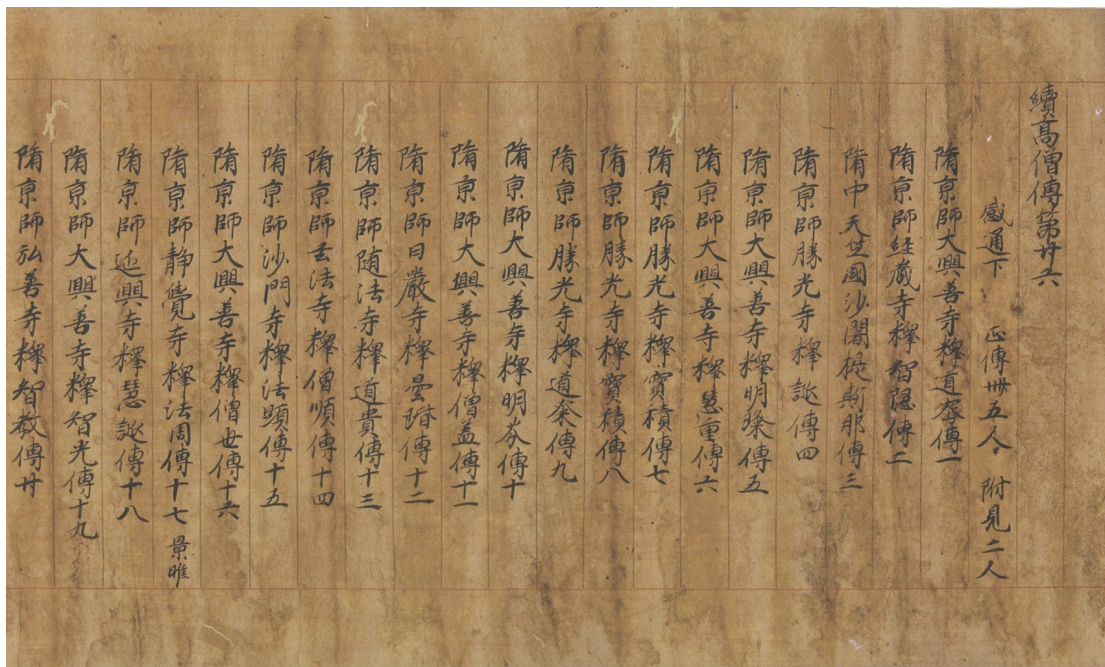 續高僧傳第廿六
感通下 正傳卌五人 附見二人
隋京師大興善寺釋道密傳一
隋京師經藏寺釋智隱傳二
隋中天竺國沙闍提斯那傳三
隋京師勝光寺釋誕傳四
隋京師大興善寺釋明璨傳五
隋京師大興善寺釋慧重傳六
隋京師勝光寺釋寶積傳七
隋京師勝光寺釋寶積傳八
隋京師勝光寺釋道粲傳九
隋京師大興善寺釋明芬傳十
隋京師大興善寺釋僧盖傳十一
隋京師日嚴寺釋曇瑎傳十二
隋京師随法寺釋道貴傳十三
隋京師玄法寺釋僧順傳十四
隋京師沙門寺釋法顯傳十五
隋京師大興善寺釋僧世傳十六
隋京師靜覺寺釋法周傳十七 景暉
隋京師延興寺釋慧誕傳十八
隋京師大興善寺釋智光傳十九
隋京師弘善寺釋智教傳廿